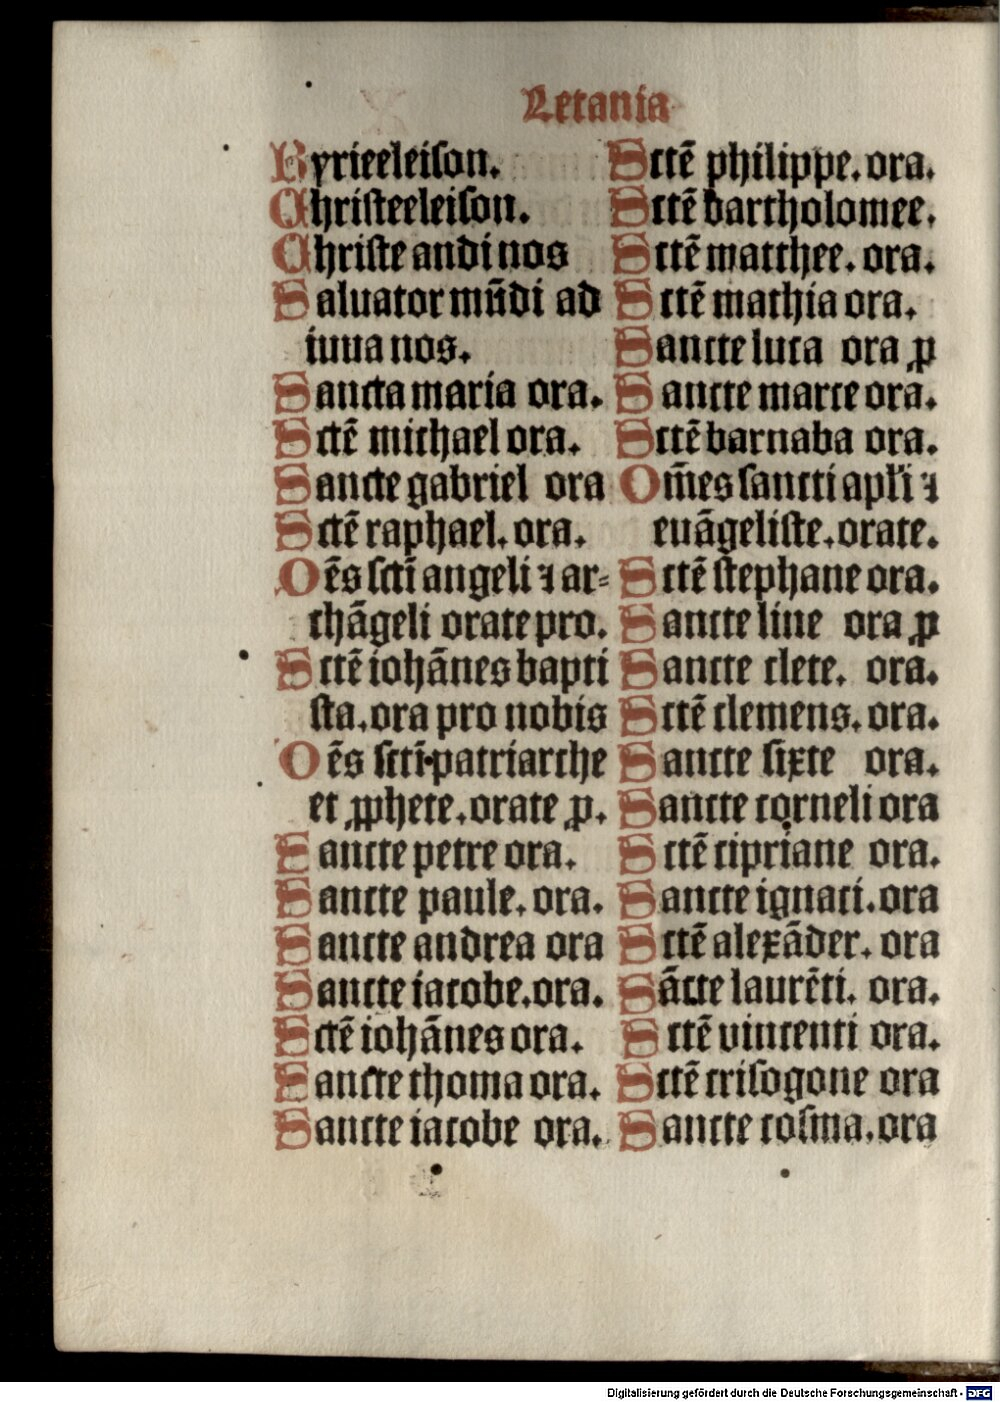 Letania
Kyrieeleiſon.
Chriſteeleiſon.
Chriſte andi nos
Saluator mūdi ad
iuua nos.
Sancta maria ora.
Sctē michael ora.
Sancte gabriel ora
Sctē raphael. ora.
Oēs ſcti̅ angeli ⁊ ar⸗
chāgeli orate pro.
Sctē iohānes bapti
ſta. ora pro nobis
Oēs ſcti̅ patriarche
et ꝓphete. orate ꝓ.
Sancte petre ora.
Sancte paule. ora.
Sancte andrea ora
Sancte iacobe. ora.
Sctē iohānes ora.
Sancte thoma ora.
Sancte iacobe ora.
Sctē philippe. ora.
Sctē bartholomee.
Sctē matthee. ora.
Sctē mathia ora.
Sancte luca ora ꝓ
Sancte marce ora.
Sctē barnaba ora.
Om̅es ſancti apl'i ⁊
euāgeliſte. orate.
Sctē ſtephane ora.
Sancte line ora ꝓ
Sancte clete. ora.
Sctē clemens. ora.
Sancte ſixte ora.
Sancte corneli ora
Sctē cipriane ora.
Sancte ignaci. ora
Sctē alexāder. ora
Sācte laurēti. ora.
Sctē vincenti ora.
Sctē criſogone ora
Sancte coſma. ora
Digitalisierung gefördert durch die Deutsche Forschungsgemeinschaft - DFG